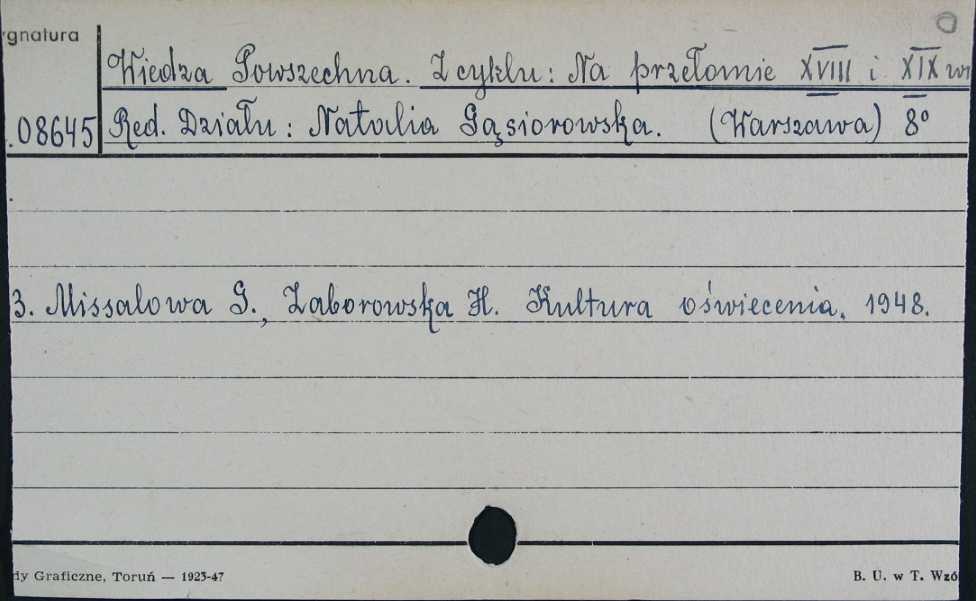 ygnatura
Wiedza Powszechna. Z cyklu: Na przełomie XVIII i XIX w
.08645 Red. Działu: Natalia Gąsiorowska. (Warszawa) 8°
3. Missalowa G., Zaborowska H. Kultura oświecenia. 1948.
dy Graficzne, Toruń — 1923-47 B. U. w T. Wzó